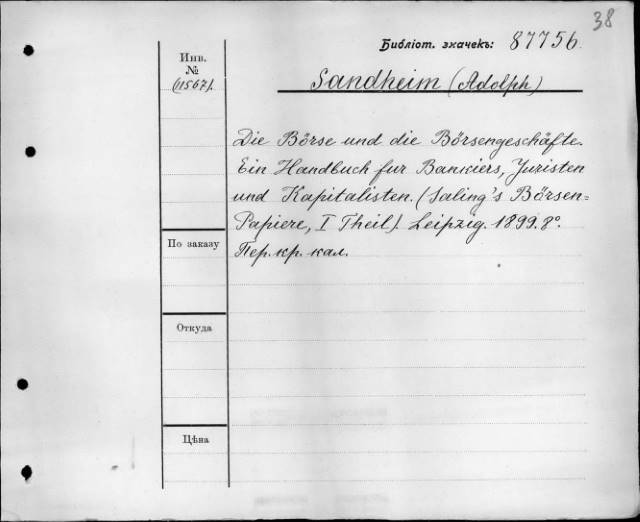 38
Библіот. значекъ: 87756.
Инв.
№
(11567).
Sandheim (Adolph)
Die Börse und die Börsengeschäfte.
Ein Handbuch fur Bankiers, Juristen
und Kapitalisten. (Saling's Börsen=
Papiere, I Theil). Leipzig. 1899. 8º.
Пер. кр. кал.
По заказу
Откуда
Цѣна